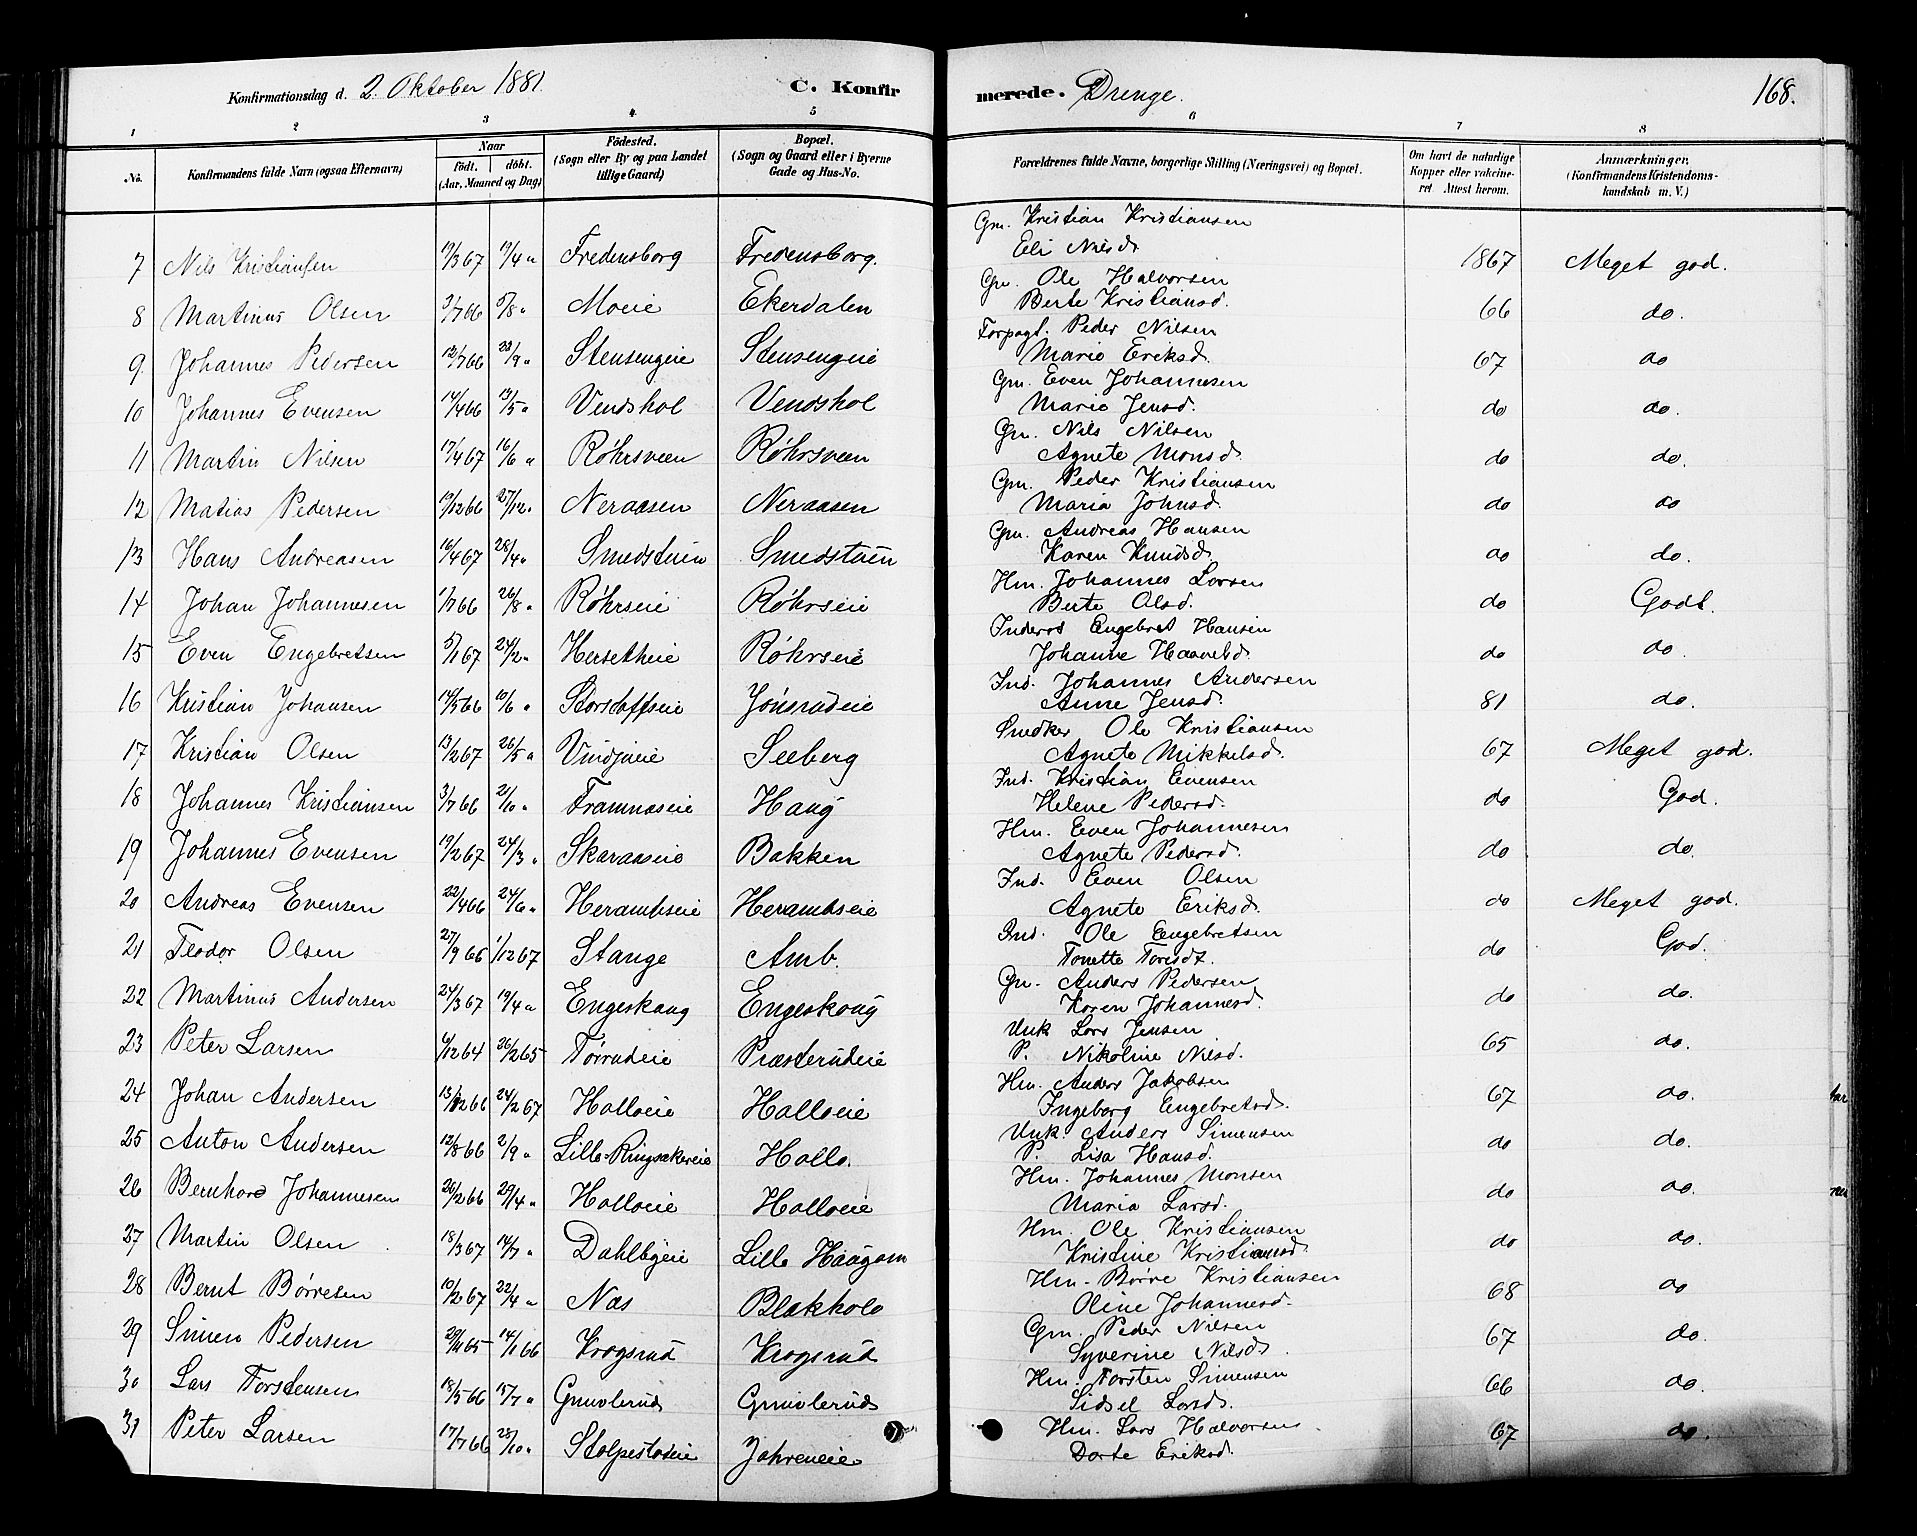 Konfirmationsdag d. 2. Oktober 1881. C. Konfirmerede. Drenge. 168.
1 2 3 4 5 6 7 8
No. Konfirmandens fulde Navn (ogsaa Efternavn) Naar födt. döbt. (Aar, Maaned og Dag) Födested. (Sogn eller By og paa Landet tillige Gaard) Bopæl. (Sogn og Gaard eller i Byerne Gade og Hus-No. Forældrenes fulde Navne, borgerlige Stilling (Næringsvei) og Bopæl. Om havt de naturlige Kopper eller vakcineret Attest herom. Anmærkninger. (Konfirmandens Kristendomskundskab m. V.)
7 Nils Kristiansen 19/3 67 19/4 " Fredensborg Fredensborg. Gm. Kristian Kristiansen Eli Nilsd. 1867 Meget god.
8 Martinus Olsen 9/7 66 5/8 " Moeie Ekerdalen Gm. Ole Halvorsen Berte Kristiansd. 66 do.
9 Johannes Pedersen 12/7 66 23/9 " Stensengeie Stensengeie Forpagt. Peder Nilsen Marie Eriksd. 67 do
10 Johannes Evensen 14/4 66 13/5 " Vendskol Vendskol Gm. Even Johannesen Marie Jensd. do do.
11 Martin Nilsen 17/4 67 16/6 " Røhrsveen Røhrsveen Gm. Nils Nilsen Agnete Monsd. do do.
12 Matias Pedersen 19/12 66 27/12 " Neraasen Neraasen Gm. Peder Kristiansen Maria Johnsd. do do
13 Hans Andreasen 16/4 67 28/4 " Smedstuen Smedstuen Gm. Andreas Hansen Karen Knudsd. do do.
14 Johan Johannesen 1/7 66 26/8 " Røhrseie Røhrseie Hm. Johannes Larsen Berte Olsd. do Godt.
15 Even Engebretsen 5/1 67 24/2 " Hersetheie Røhrseie Inderst Engebret Hansen Johanne Haavelsd. do do.
16 Kristian Johansen 14/5 66 10/6 " Storstoffseie Jønsrudeie Ind. Johannes Andersen Anne Jensd. 81 do.
17 Kristian Olsen 13/2 67 26/5 " Vindjueie Seeberg Snedker Ole Kristiansen Agnete Mikkelsd. 67 Meget god.
18 Johannes Kristiansen 3/7 66 2/10 " Framnæseie Haug Ind. Kristian Evensen Helene Pedersd. do God.
19 Johannes Evensen 19/2 67 24/3 " Skaraaseie Bakken Hm. Even Johannesen Agnete Pedersd. do do.
20 Andreas Evensen 22/4 66 24/6 " Herambseie Herambseie Ind. Even Olsen Agnete Eriksd. do Meget god.
21 Teodor Olsen 27/9 66 1/12 67 Stange Amb. Ind. Ole Engebretsen Tonette Toresdt. do God.
22 Martinus Andersen 24/3 67 19/4 " Engeskaug Engeskoug Gm. Anders Pedersen Karen Johannesd. do do.
23 Peter Larsen 4/12 64 26/2 65 Tørrudeie Præsterudeie Unk Lars Jensen P. Nikoline Nilsd. 65 do.
24 Johan Andersen 13/12 66 24/2 67 Holloeie Holloeie Hm. Anders Jakobsen Ingeborg Engebretsd. 67 do.
25 Anton Andersen 12/8 66 2/9 " Lille-Ringsakereie Hollo. Unk. Anders Simensen P. Lisa Hansd. do do.
26 Bernhard Johannesen 26/2 66 29/4 " Holloeie Holloeie Hm. Johannes Monsen Maria Larsd. do do.
27 Martin Olsen 18/3 67 14/7 " Dahlbyeie Lille Haugom Hm. Ole Kristiansen Kristine Kristiansd. do do.
28 Bernt Børresen 10/2 67 22/4 " Næs Blækkolo Hm. Børre Kristiansen Oline Johannesd. 68 do
29 Simen Pedersen 29/11 65 14/1 66 Krogsrud Krogsrud Gm. Peder Nilsen Syverine Nilsd. 67 do.
30 Lars Torstensen 18/5 66 15/7 " Gruvlerud Gruvlerud Hm. Torsten Simensen Sidsel Larsd. 66 do.
31 Peter Larsen 17/7 66 28/10 " Stolpestadeie Jahreneie Hm. Lars Halvorsen Dorte Eriksd. 67 do.